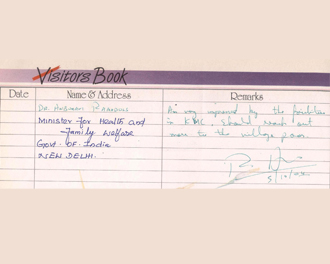 Visitors Book
Date Name & Address Remarks
Dr. Anbumani Ramadoss
Minister for Health and
Family Welfare
Govt. of. India
NEW DELHI.
Am very impressed by the facilities
in KMC. Should reach out
more to the village poor.